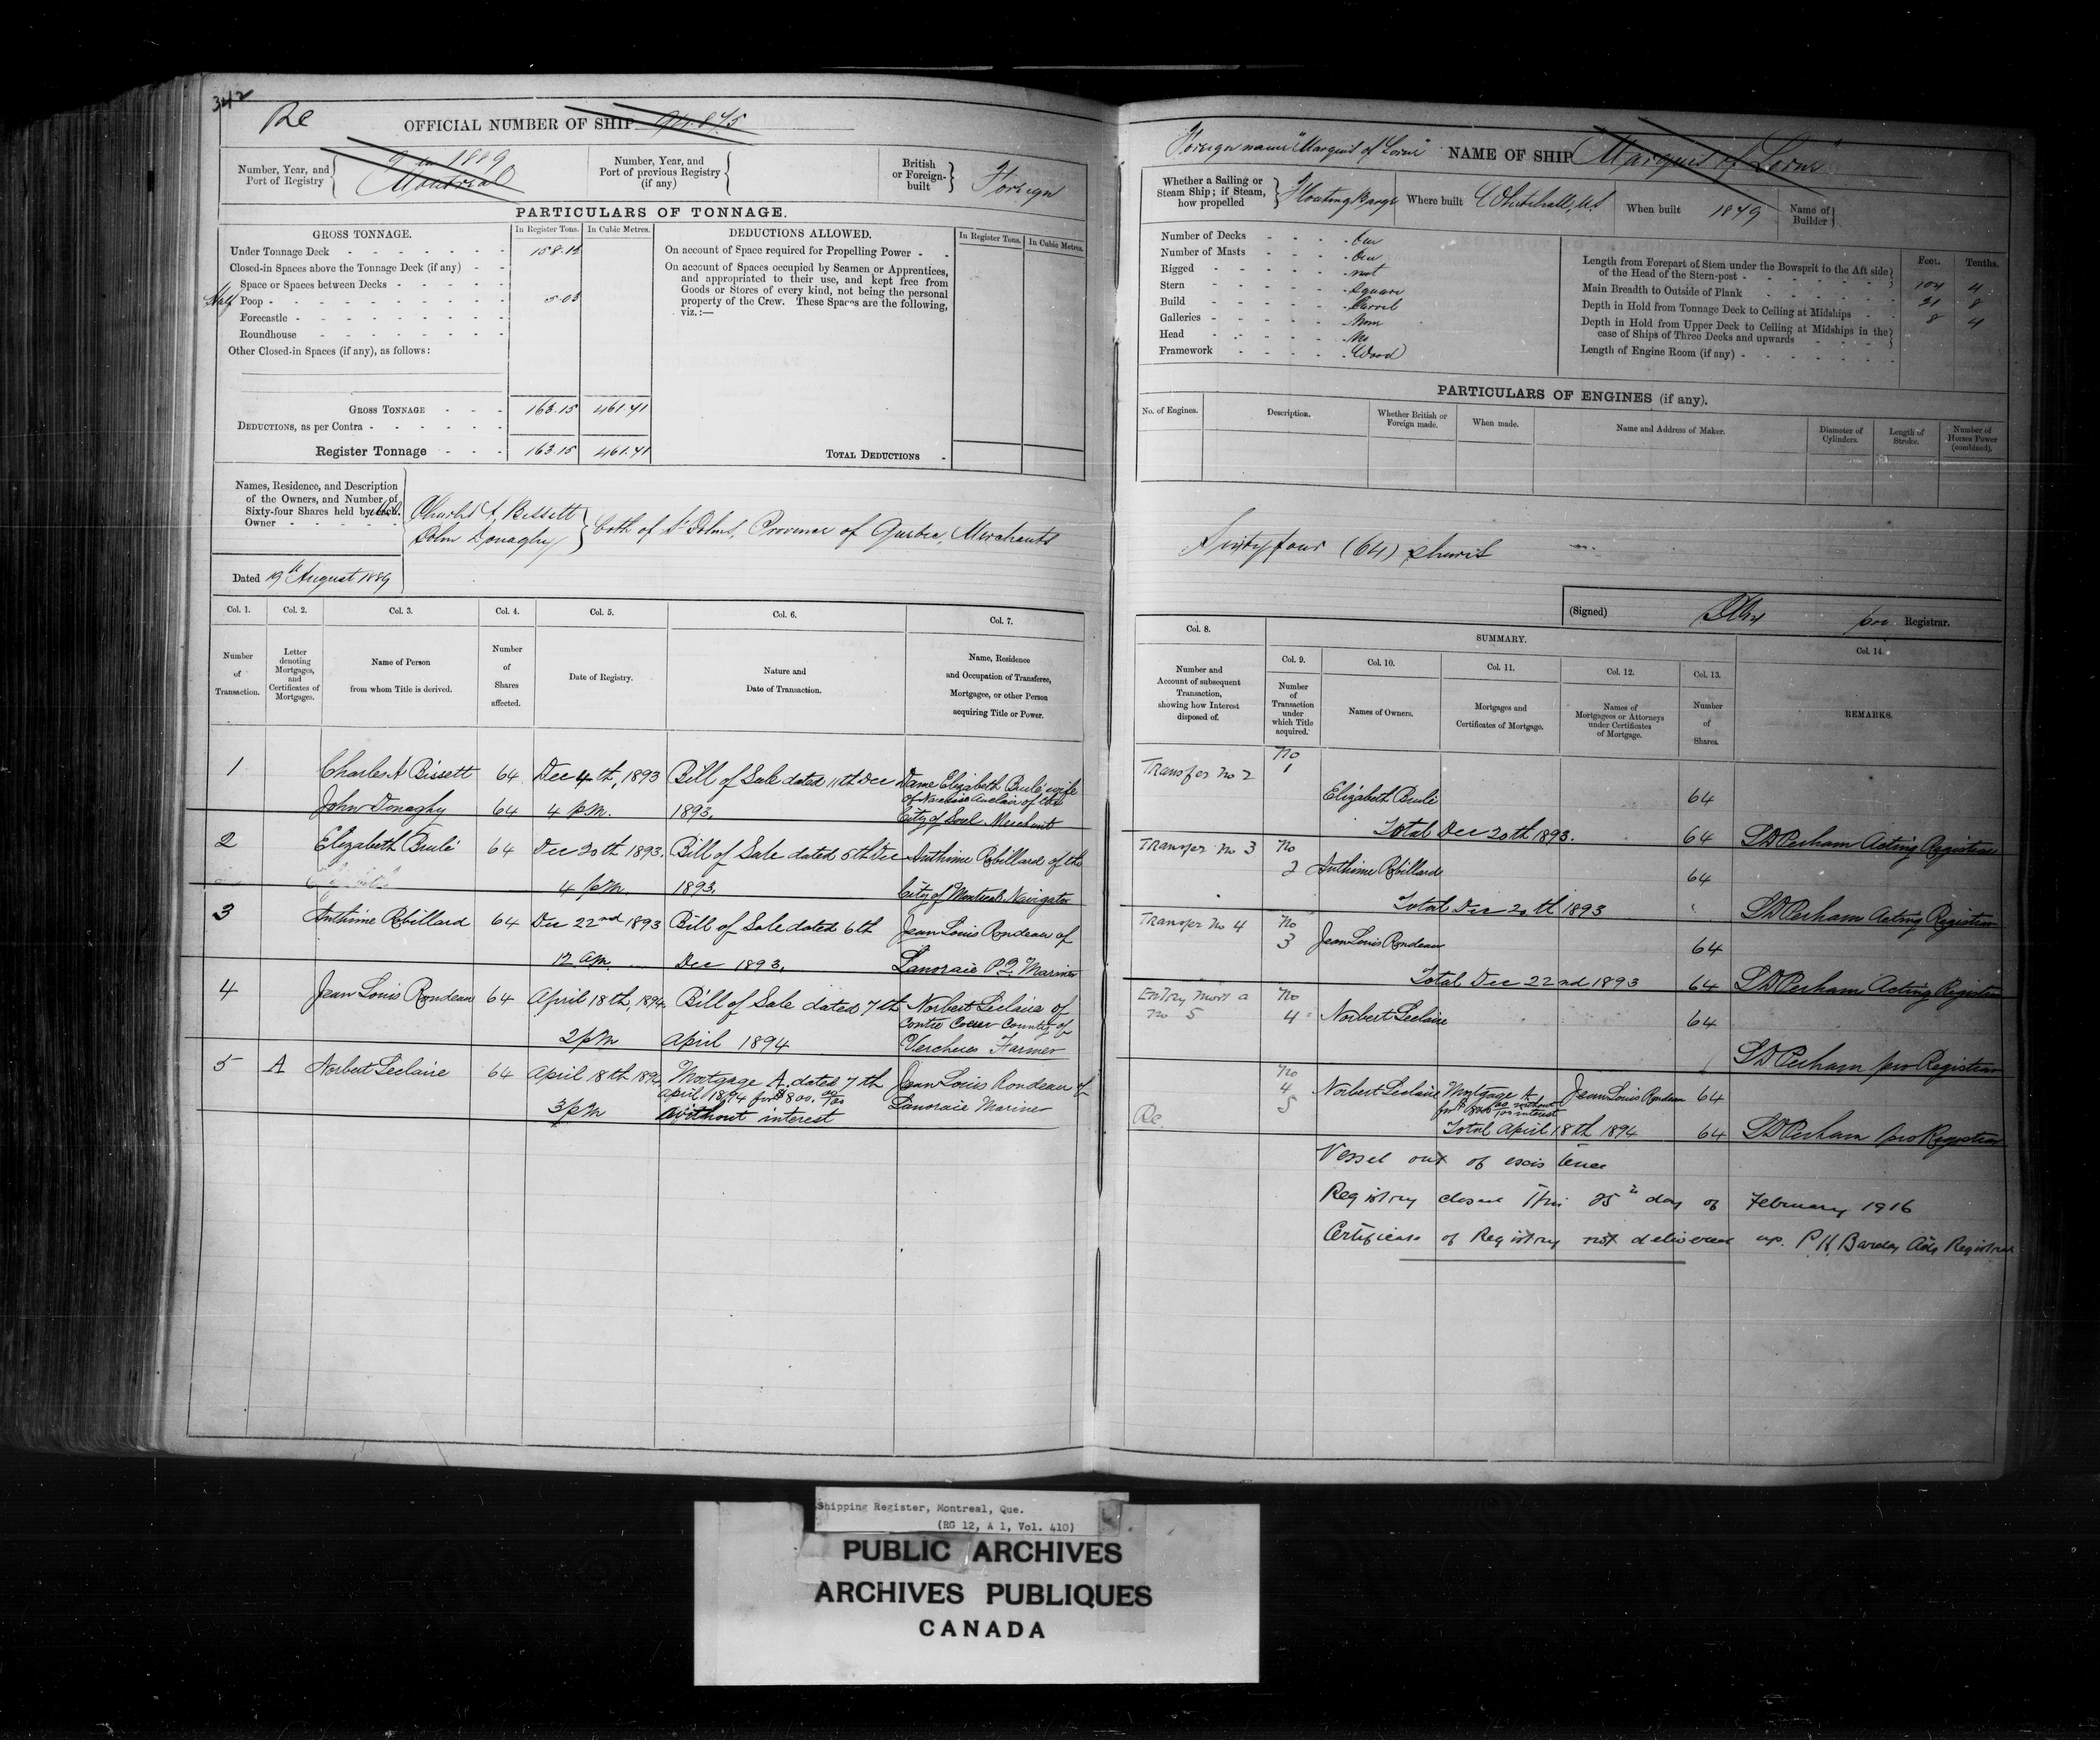 342
Re
OFFICIAL NUMBER OF SHIP 94.845
Number, Year, and Port of Registry
1889
Montreal
Number, Year, and Port of previous Registry (if any)
British or Foreign-built
Foreign
PARTICULARS OF TONNAGE.
GROSS TONNAGE.
In Register Tons.
In Cubic Metres.
Under Tonnage Deck 158.12
Closed-in Spaces above the Tonnage Deck (if any)
Space or Spaces between Decks
Half Poop 5.03
Forecastle
Roundhouse
Other Closed-in Spaces (if any), as follows:
GROSS TONNAGE 163.15 461.71
DEDUCTIONS, as per Contra
Register Tonnage 163.15 461.71
DEDUCTIONS ALLOWED.
In Register Tons.
In Cubic Metres.
On account of Space required for Propelling Power
On account of Spaces occupied by Seamen or Apprentices,
and appropriated to their use, and kept free from
Goods or Stores of every kind, not being the personal
property of the Crew. These Spaces are the following,
viz.:—
TOTAL DEDUCTIONS
Names, Residence, and Description
of the Owners, and Number of
Sixty-four Shares held by each
Owner
Charles A. Bissett
John Donaghy
both of St Johns, Province of Quebec, Merchants
Dated 19th August 1889
Col. 1.
Number of Transaction.
Col. 2.
Letter denoting Mortgages, and Certificates of Mortgages.
Col. 3.
Name of Person from whom Title is derived.
Col. 4.
Number of Shares affected.
Col. 5.
Date of Registry.
Col. 6.
Nature and Date of Transaction.
Col. 7.
Name, Residence and Occupation of Transferee, Mortgagee, or other Person acquiring Title or Power.
1 Charles A Bissett 64 Dec 4th, 1893 Bill of Sale dated 11th Dec Dame Elizabeth Brulé wife
of Narcisse Auclair of the
John Donaghy 64 4 pm. 1893. City of Sorel Merchant
2 Elizabeth Brulé 64 Dec 20th 1893. Bill of Sale dated 5th Dec Anthime Robillard of the
4 pm. 1893. City of Montreal Navigator
3 Anthime Robillard 64 Dec 22nd 1893 Bill of Sale dated 6th Jean Louis Rondeau of
12 am. Dec 1893. Lanoraie P.Q. Mariner
4 Jean Louis Rondeau 64 April 18th, 1894. Bill of Sale dated 7th Norbert Leclaire of
Contre Coeur County of
2 pm April 1894 Vercheres Farmer
5 A Norbert Leclaire 64 April 18th 1894 Mortgage A. dated 7th Jean Louis Rondeau of
April 1894 for $800. 00/100 Lanoraie Mariner
3 pm without interest
Foreign name "Marquis of Lorne"
NAME OF SHIP "Marquis of Lorne"
Whether a Sailing or Steam Ship; if Steam, how propelled
Floating Barge
Where built Whitehall, U.S.
When built 1879
Name of Builder
Number of Decks One
Number of Masts One
Rigged not
Stern Square
Build Carvel
Galleries None
Head No
Framework Wood
Feet. Tenths.
Length from Forepart of Stem under the Bowsprit to the Aft side
of the Head of the Stern-post 104 4
Main Breadth to Outside of Plank 21 8
Depth in Hold from Tonnage Deck to Ceiling at Midships 8 4
Depth in Hold from Upper Deck to Ceiling at Midships in the
case of Ships of Three Decks and upwards
Length of Engine Room (if any)
PARTICULARS OF ENGINES (if any).
No. of Engines.
Description.
Whether British or Foreign made.
When made.
Name and Address of Maker.
Diameter of Cylinders.
Length of Stroke.
Number of Horses Power (combined).
Sixty four (64) shares
(Signed)
pro Registrar.
Col. 8.
Number and Account of subsequent Transaction, showing how Interest disposed of.
SUMMARY.
Col. 9.
Number of Transaction under which Title acquired.
Col. 10.
Names of Owners.
Col. 11.
Mortgages and Certificates of Mortgage.
Col. 12.
Names of Mortgagees or Attorneys under Certificates of Mortgage.
Col. 13.
Number of Shares.
Col. 14.
REMARKS.
Transfer No 2 No 1 Elizabeth Brulé 64
Total Dec 20th 1893. 64 Perham Acting Registrar
Transfer No 3 No 2 Anthime Robillard 64
Total Dec 20th 1893 Perham Acting Registrar
Transfer No 4 No 3 Jean Louis Rondeau 64
Total Dec 22nd 1893 64 Perham Acting Registrar
Entry Mort a No 5 No 4 Norbert Leclaire 64
Perham pro Registrar
No 4 5 Norbert Leclaire Mortgage A Jean Louis Rondeau 64
for $800 00/100 without interest
Re. Total April 18th 1894 64 Perham pro Registrar
Vessel out of existence
Registry closed this 25th day of February 1916
Certificate of Registry not delivered up. P. K. Barclay Actg Registrar
Shipping Register, Montreal, Que.
(RG 12, A 1, Vol. 410)
PUBLIC ARCHIVES
ARCHIVES PUBLIQUES
CANADA